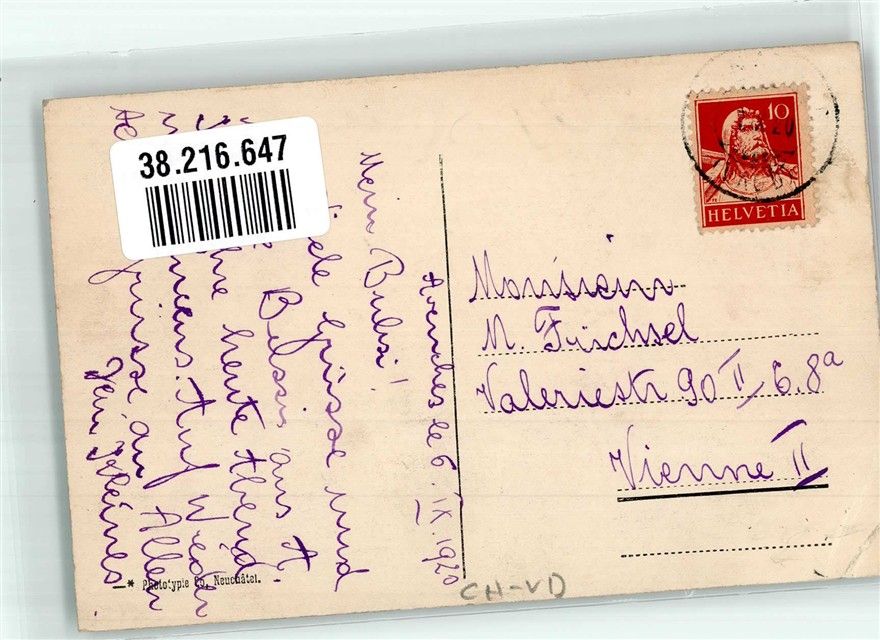 38.216.647
10
HELVETIA
Avenches le 6. IX. 1920
Mein Bubsi!
Viele Grüsse und
Bussis aus A.
heute Abend
Auf Wieder
grüsse an Allen
Dein Kleines
Monsieur
M. Frischsel
Valeriestr 90 II/6.8a
Vienne II
* Phototypie Co., Neuchâtel.
CH-VD